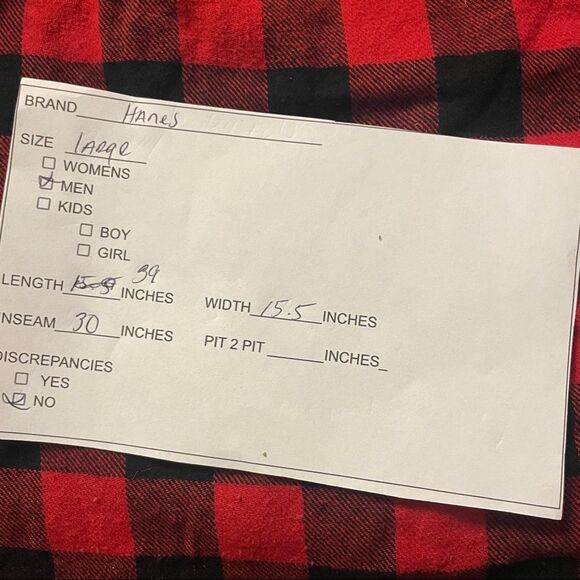 BRAND Hanes
SIZE large
WOMENS
MEN
KIDS
BOY
GIRL
39
LENGTH 15.5 INCHES WIDTH 15.5 INCHES
INSEAM 30 INCHES PIT 2 PIT ______ INCHES_
DISCREPANCIES
YES
NO